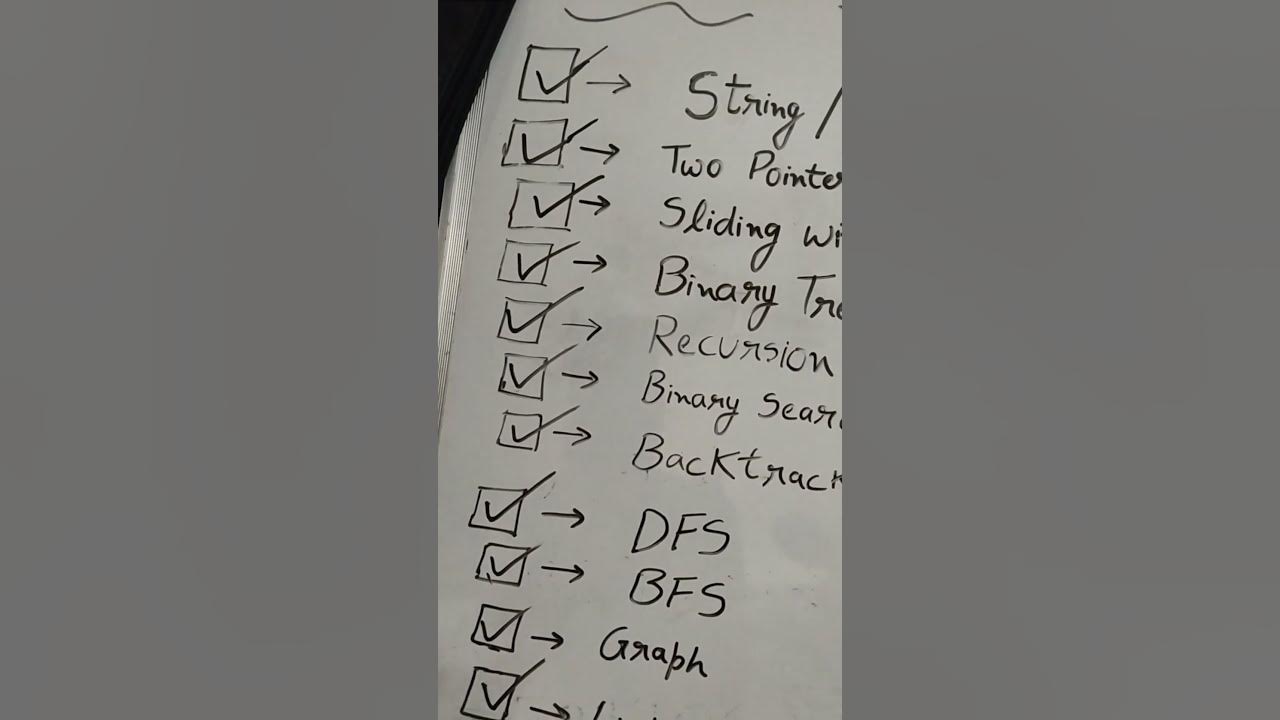 String /
Two Pointe
Sliding wi
Binary Tre
Recursion
Binary Sear
Backtrack
DFS
BFS
Graph